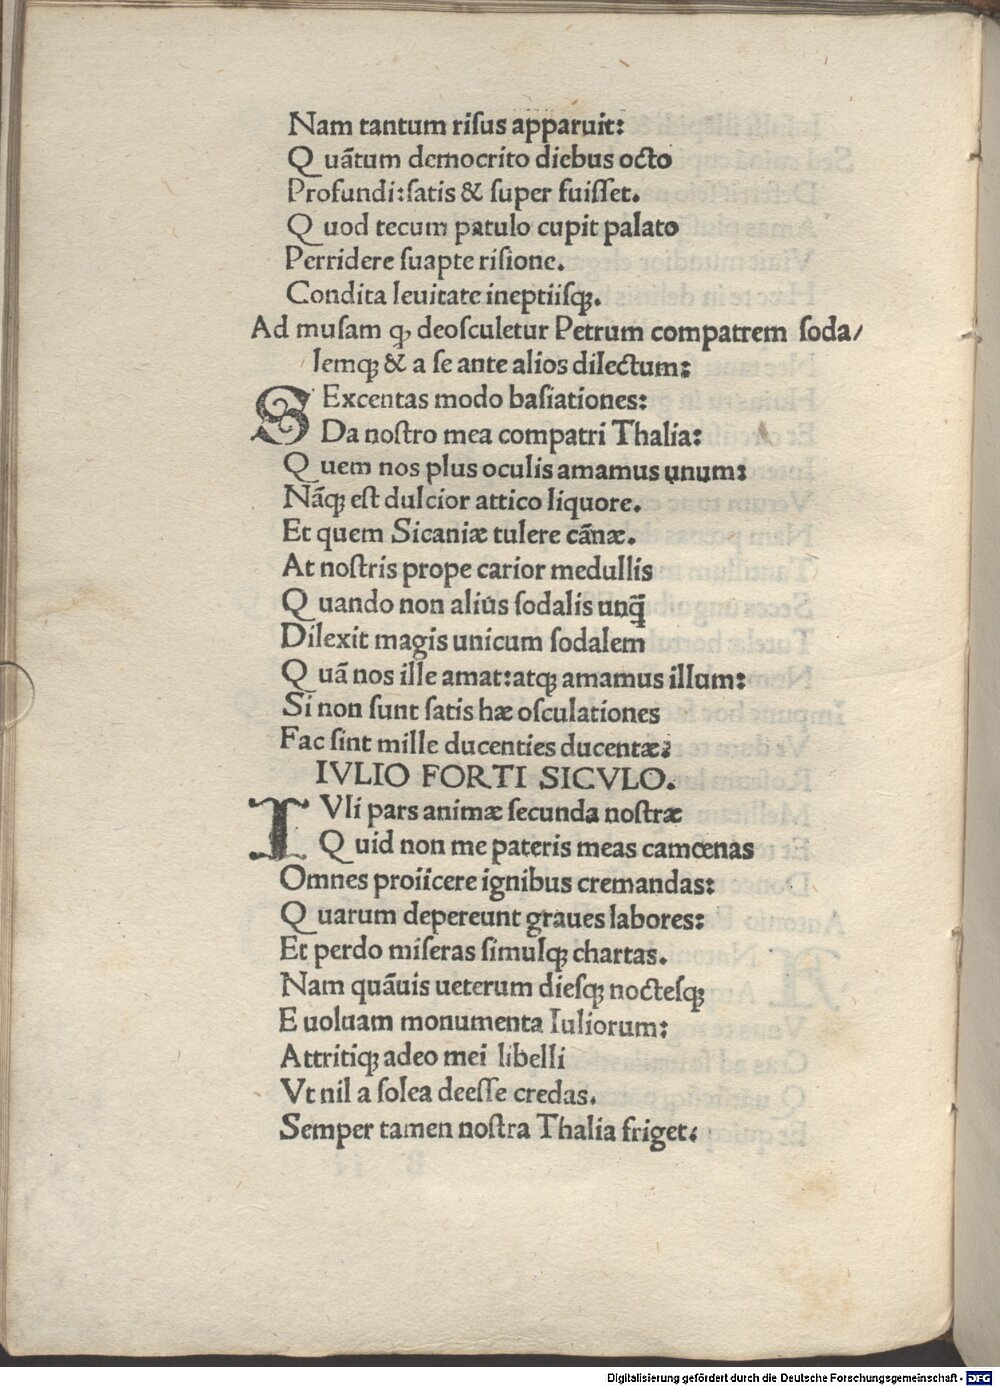 Nam tantum riſus apparuit:
Q uātum democrito diebus octo
Profundi:ſatis & ſuper fuiſſet.
Q uod tecum patulo cupit palato
Perridere ſuapte riſione.
Condita leuitate ineptiiſꝗ.
Ad muſam ꝙ deoſculetur Petrum compatrem ſoda/
lemꝗ & a ſe ante alios dilectum:
SExcentas modo baſiationes:
Da noſtro mea compatri Thalia:
Q uem nos plus oculis amamus unum:
Nāꝗ eſt dulcior attico liquore.
Et quem Sicaniæ tulere cānæ.
At noſtris prope carior medullis
Q uando non alius ſodalis unꝗ̄
Dilexit magis unicum ſodalem
Q uā nos ille amat:atꝗ amamus illum:
Si non ſunt ſatis hæ oſculationes
Fac ſint mille ducenties ducentæ:
IVLIO FORTI SICVLO.
IVli pars animæ ſecunda noſtræ
Q uid non me pateris meas camœnas
Omnes proiicere ignibus cremandas:
Q uarum depereunt graues labores:
Et perdo miſeras ſimulꝗ chartas.
Nam quāuis ueterum dieſꝗ nocteſꝗ
E uoluam monumenta Iuliorum:
Attritiꝗ adeo mei libelli
Vt nil a ſolea deeſſe credas.
Semper tamen noſtra Thalia friget:
Digitalisierung gefördert durch die Deutsche Forschungsgemeinschaft - DFG